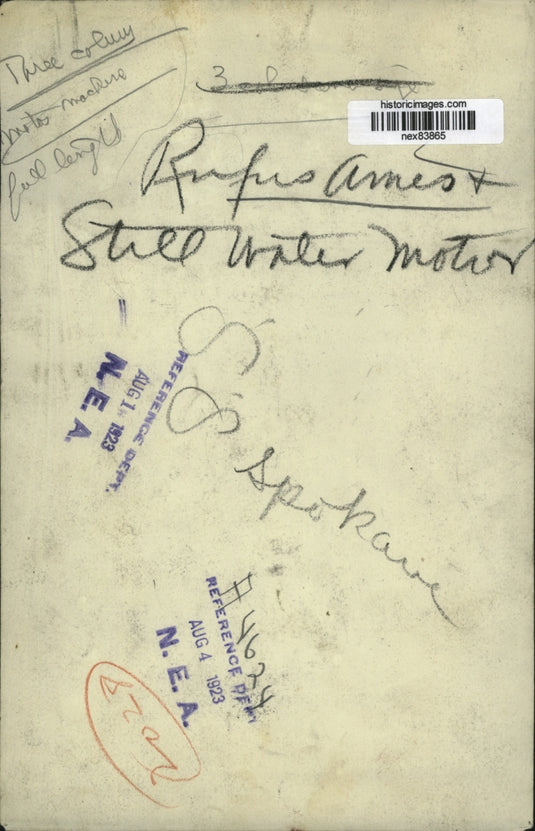 Three column
motor machine
full length
3
historicimages.com
nex83865
Rufus Ames +
Still Water Motor
REFERENCE DEPT.
AUG 1 1923
N. E. A.
Spokane
REFERENCE DEPT
AUG 4 1923
N. E. A.